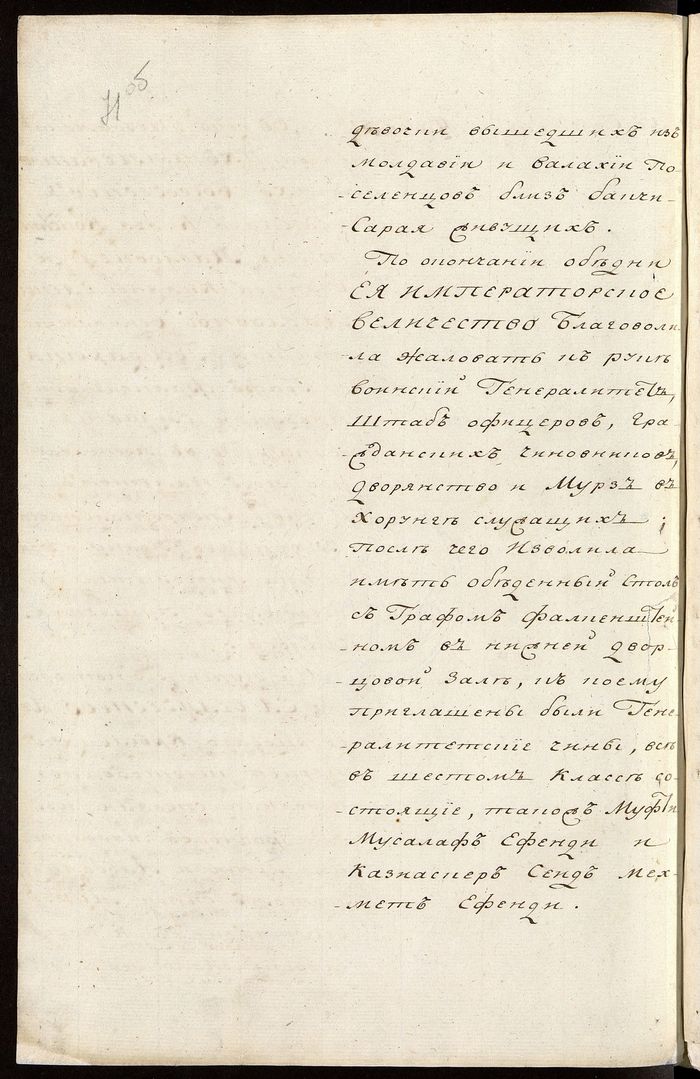 дѣвочки вышедшихъ изъ
молдавіи и валахіи по-
-селенцовъ близъ бакчи-
-Сарая живущихъ.
По окончаніи обѣдни
ЕЯ ИМПЕРАТОРСКОЕ
ВЕЛИЧЕСТВО Благоволи-
-ла жаловать къ рукѣ
воинскій Генералитетъ,
Штабъ офицеровъ, Гра-
-жданскихъ чиновниковъ,
дворянство и Мурзъ въ
Корунгѣ служащихъ;
послѣ чего Изволила
имѣть обѣденный столъ
съ Графомъ фалкенштей-
-номъ въ нижней двор-
-цовой залѣ, къ коему
приглашены были Гене-
-ралитетскіе чины, всѣ
въ шестомъ Классѣ со-
-стоящіе, такожъ Муфти
Мусалафъ Ефенди и
Казнаскеръ Сеидъ мех-
-метъ Ефенди.